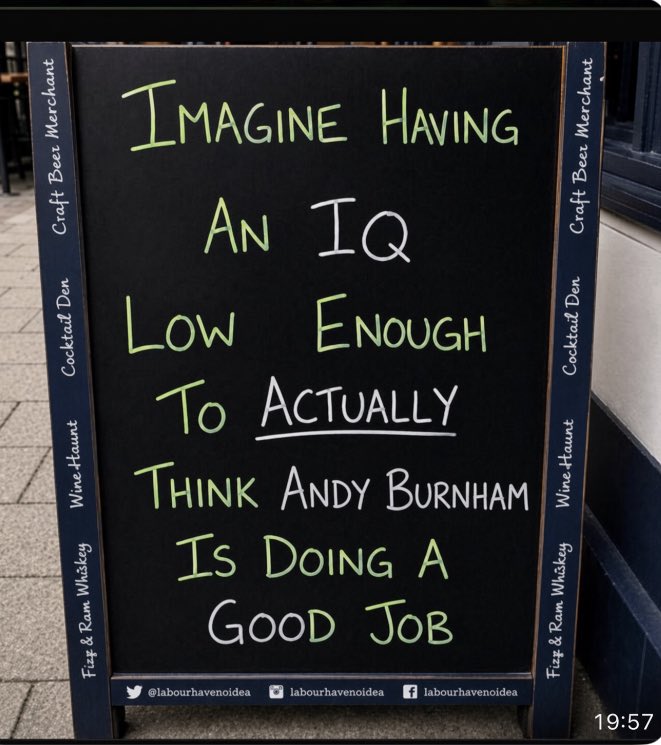 Imagine Having
An IQ
Low Enough
To Actually
Think Andy Burnham
Is Doing A
Good Job
Craft Beer Merchant
Cocktail Den
Wine Haunt
Fizz & Ram Whiskey
Craft Beer Merchant
Cocktail Den
Wine Haunt
Fizz & Ram Whiskey
@labourhavenoidea labourhavenoidea labourhavenoidea
19:57